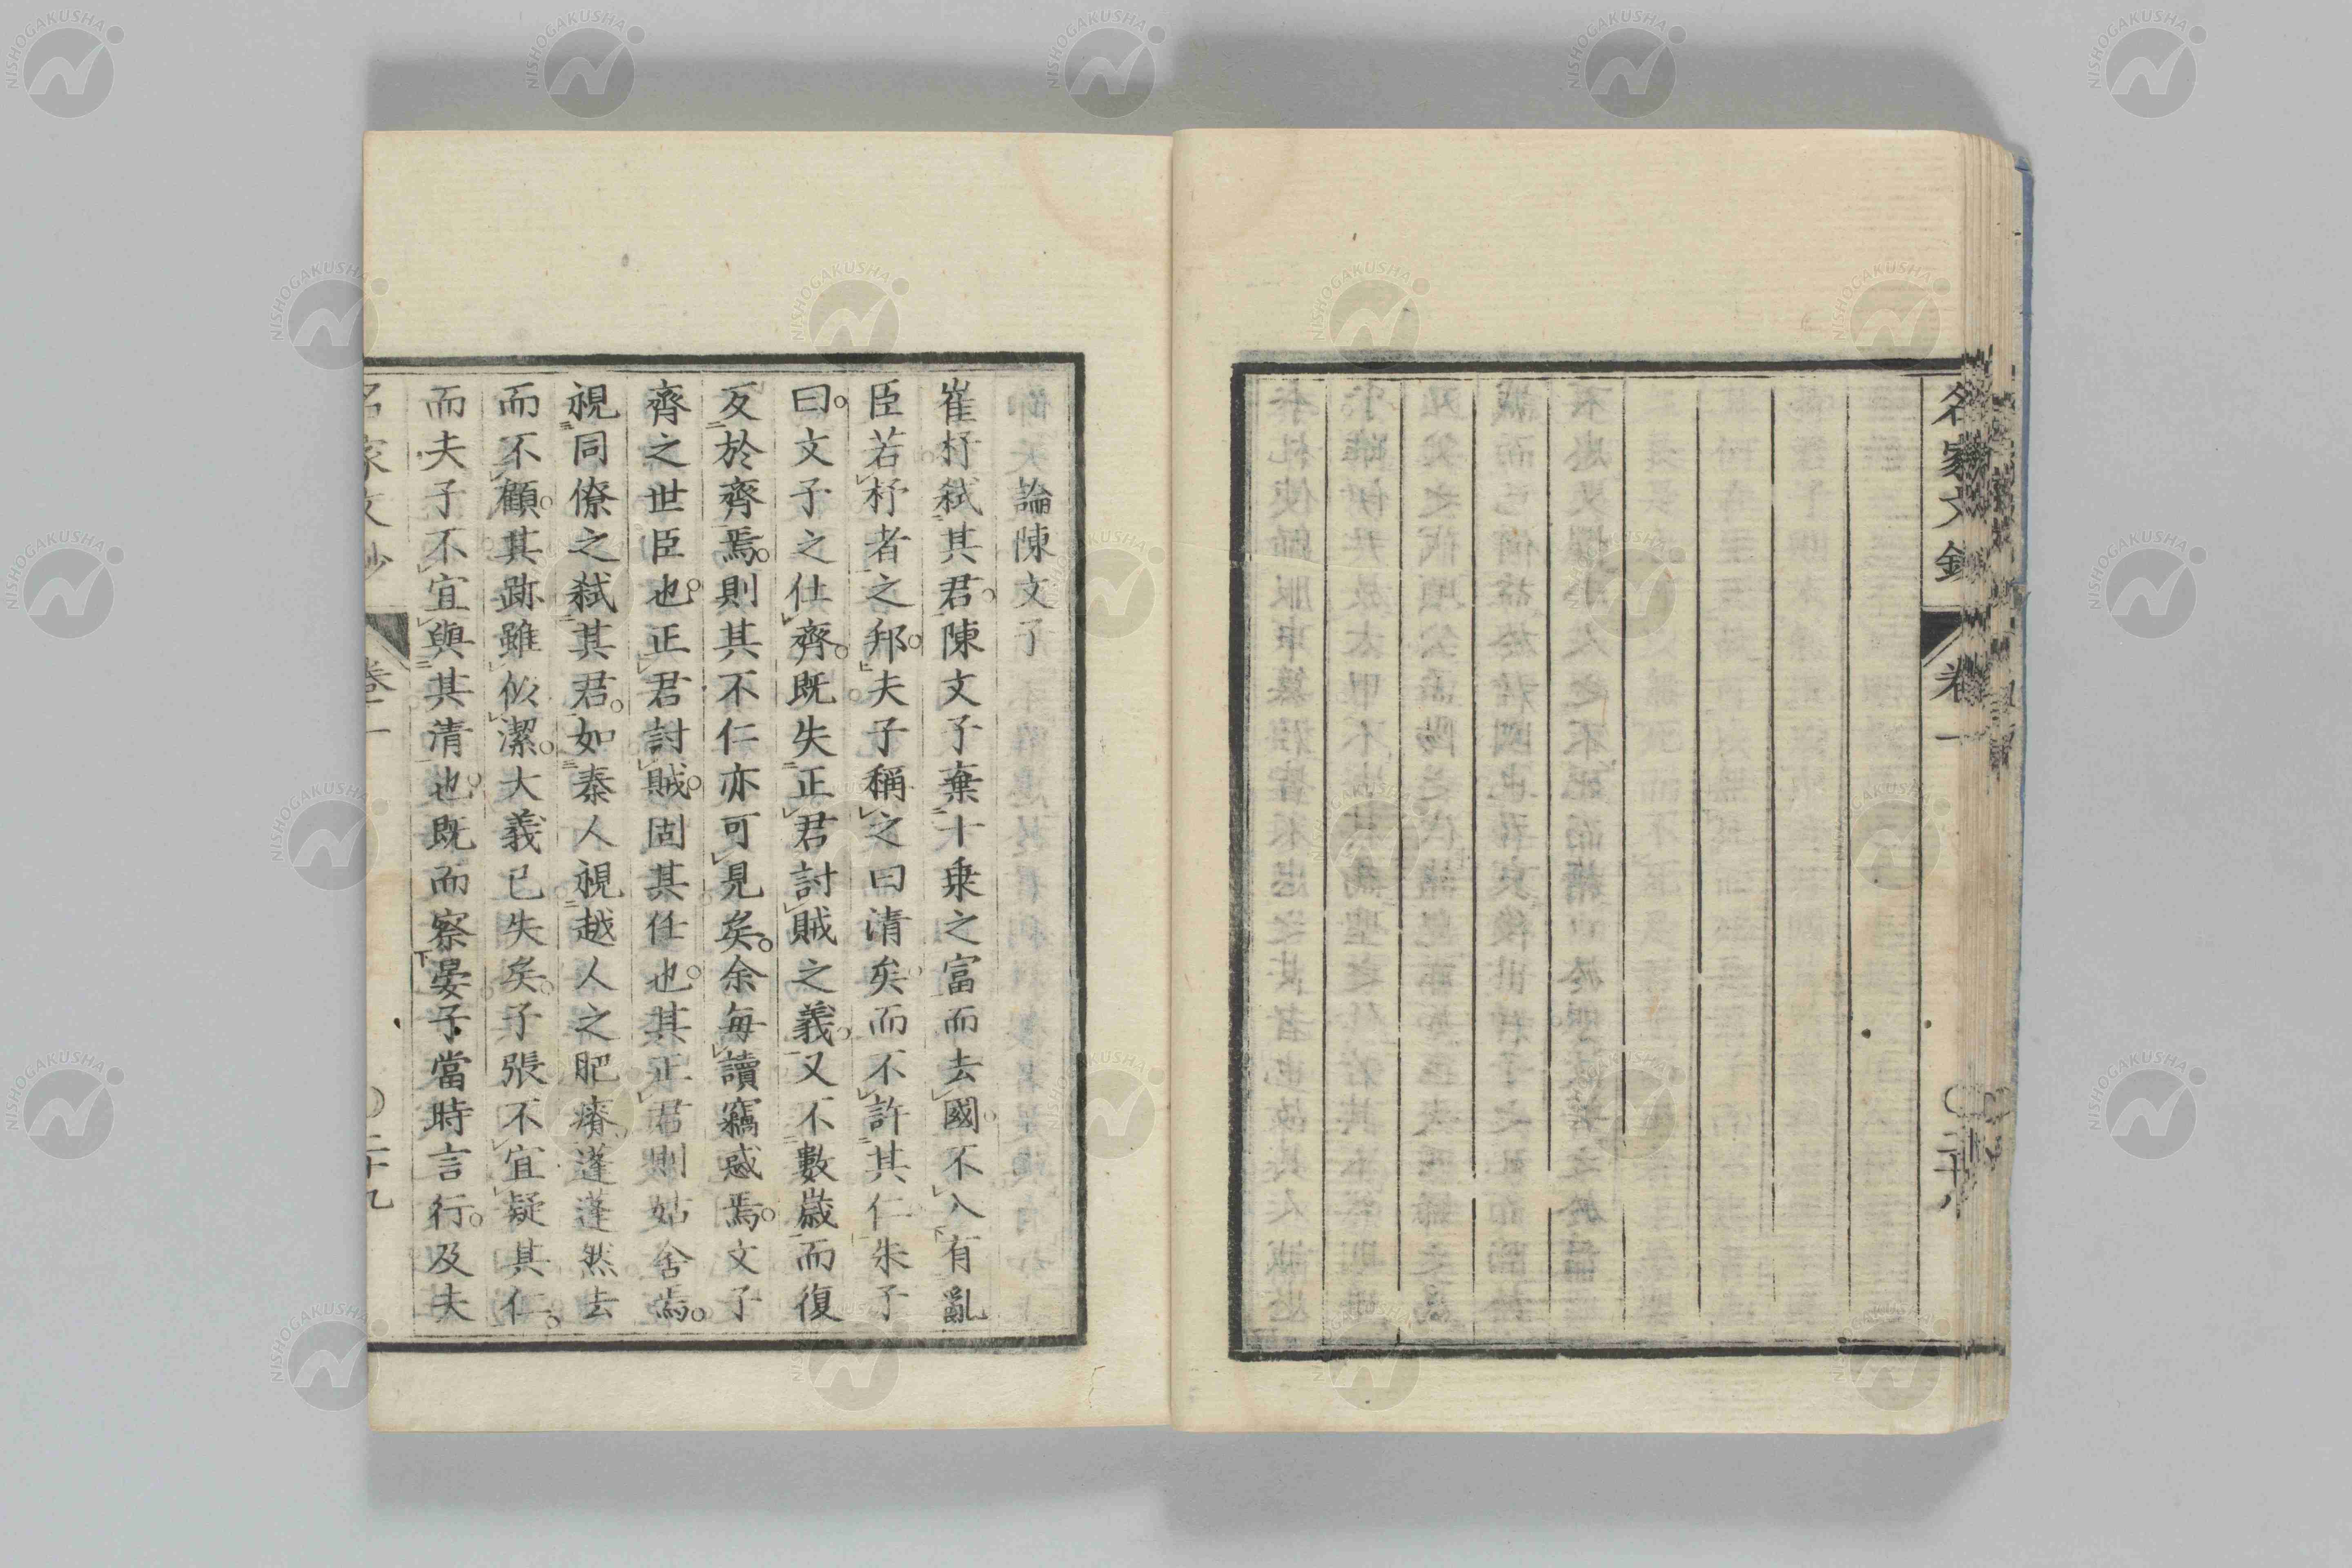 名家文鈔
卷一
論陳文子
崔杼弑其君。陳文子棄十乗之富而去國。不入有亂
臣若杼者之邦。夫子稱之曰清矣。而不許其仁朱子
曰。文子之仕齊。既失正君討賊之義。又不數歳而復
反於齊焉。則其不仁亦可見矣。余毎讀竊惑焉。文子
齊之世臣也。正君討賊。固其任也。其正君則姑舍焉。
視同僚之弑其君。如秦人視越人之肥瘠蓬蓬然去
而不顧。其跡雖似潔。大義已失矣。子張不宜疑其仁。
而夫子不宜與其清也。既而察晏子當時言行。及夫
名家文鈔
卷一
二十九
NISHOGAKUSHA